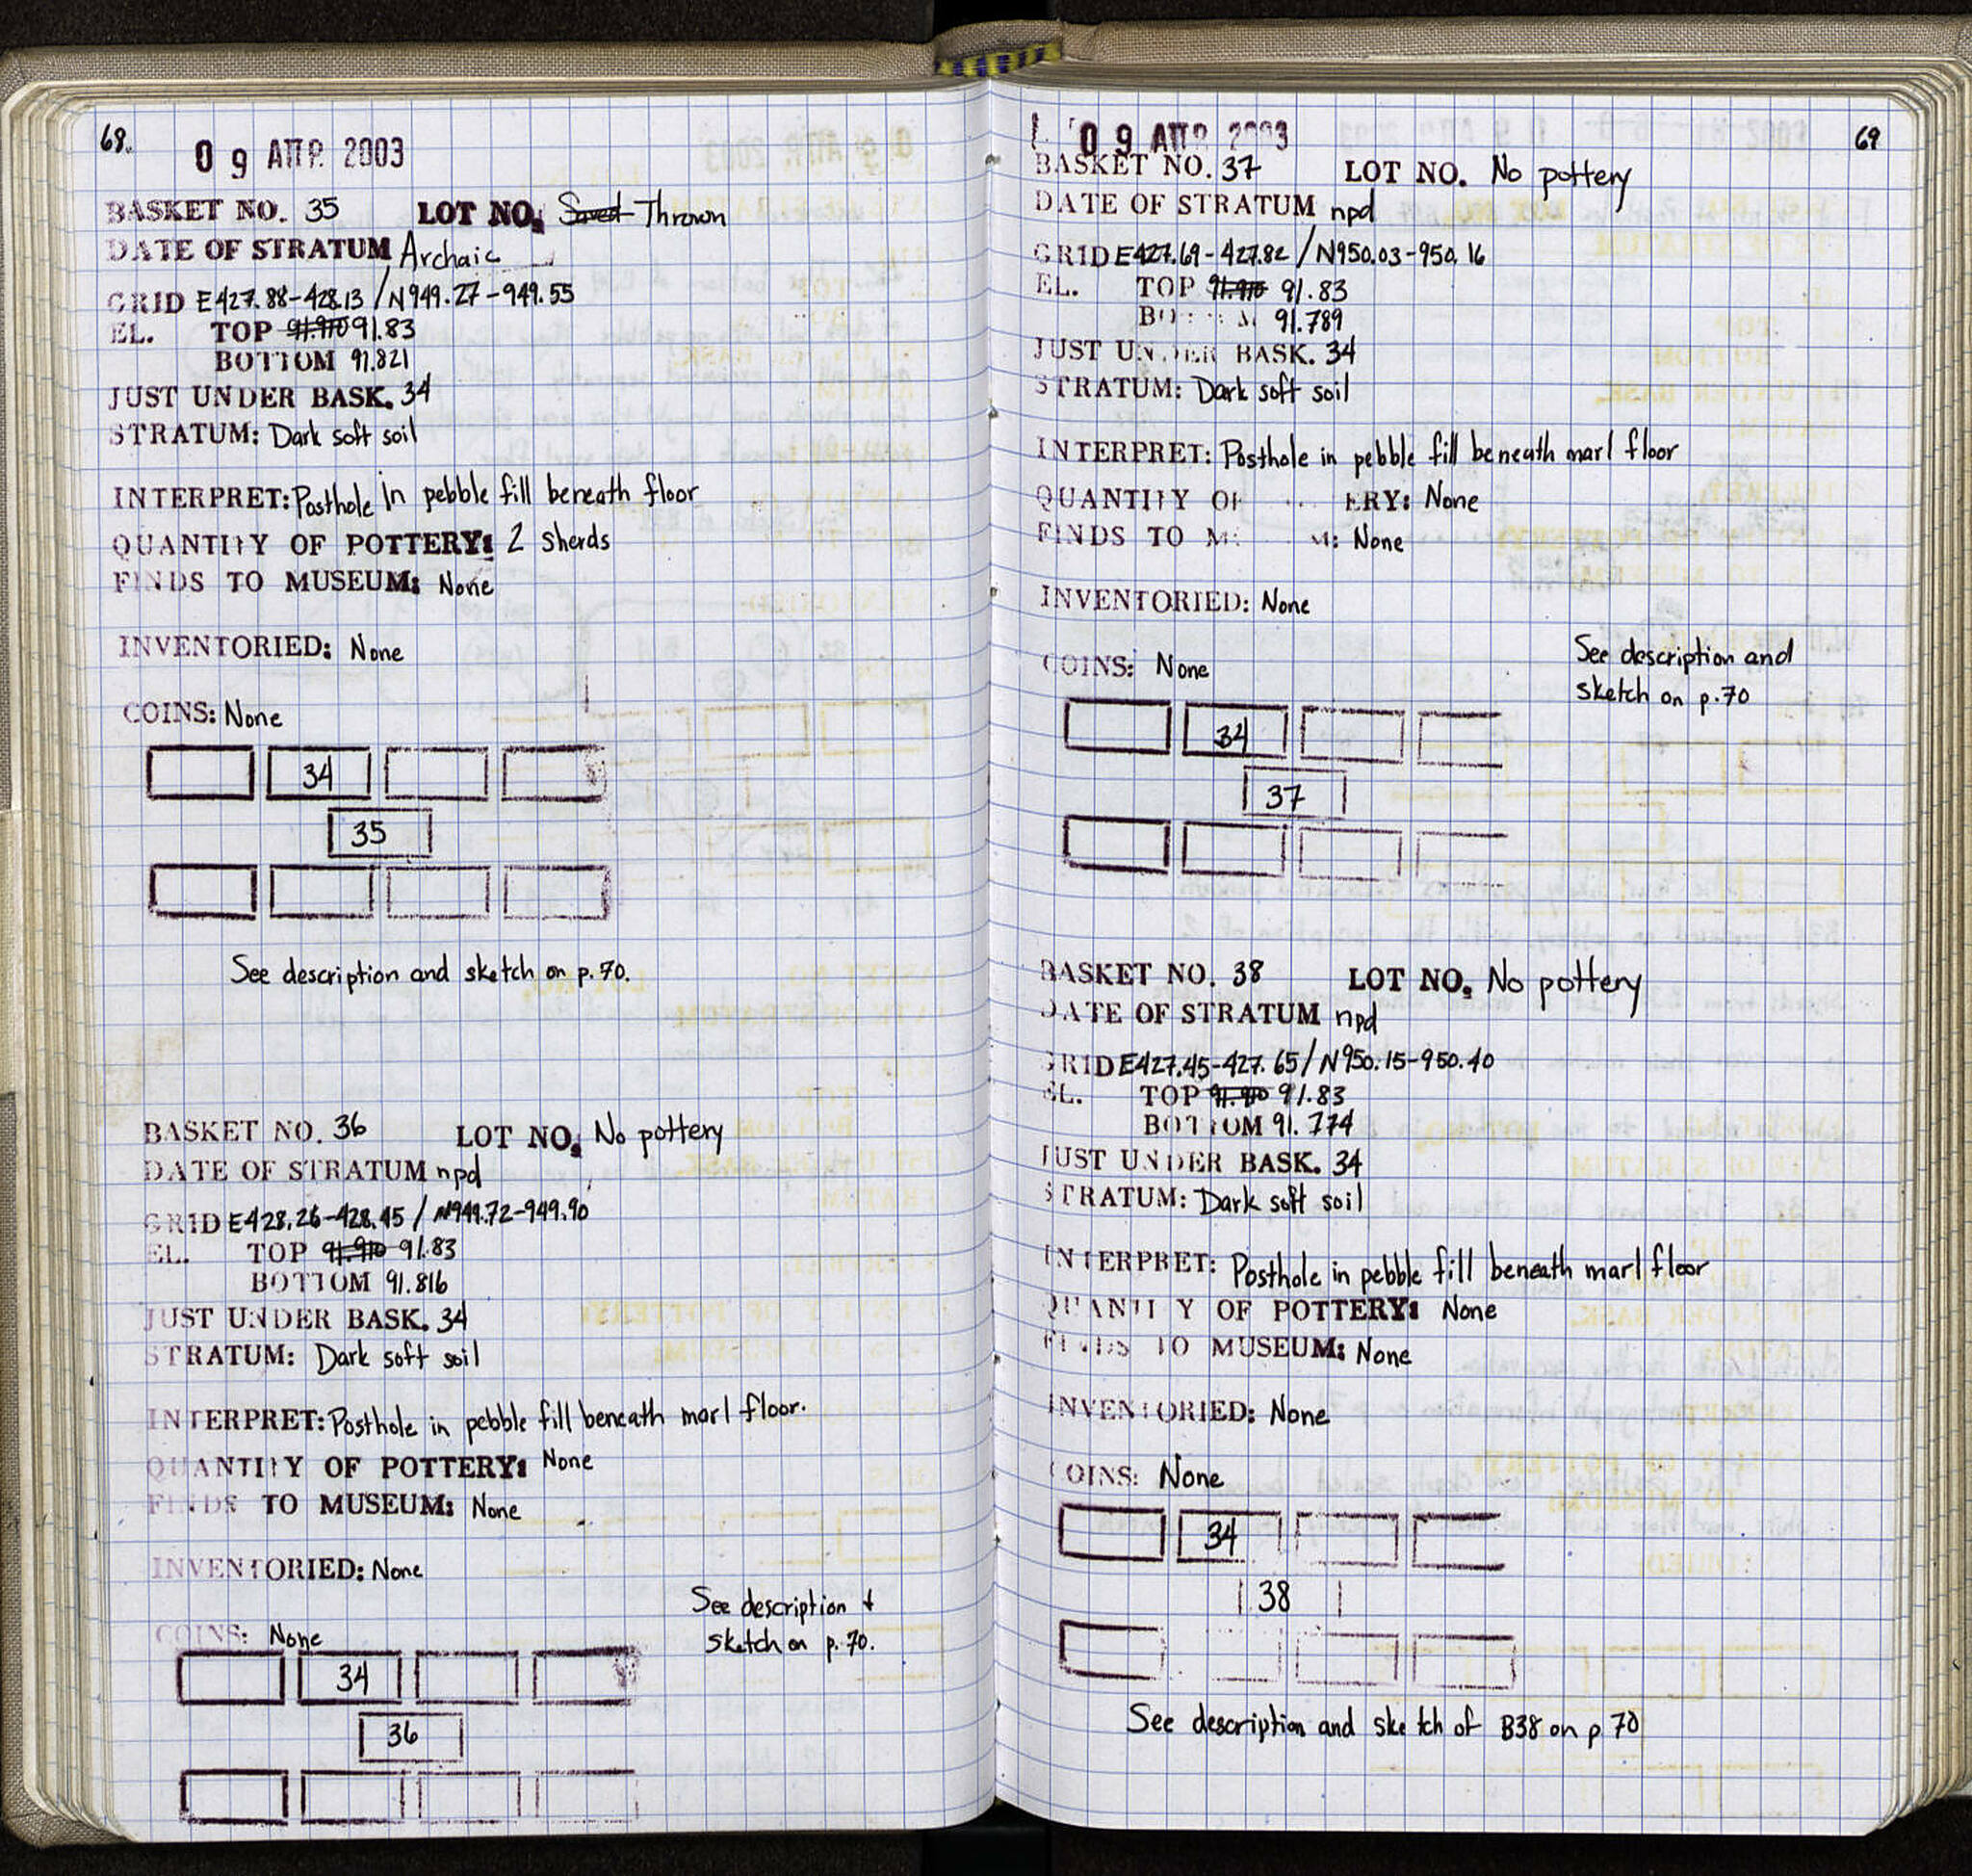 68.
09 ΑΠΡ. 2003
BASKET NO. 35 LOT NO. Saved Thrown
DATE OF STRATUM Archaic
GRID E427.88-428.13 / N949.27-949.55
EL. TOP 91.910 91.83
BOTTOM 91.821
JUST UNDER BASK. 34
STRATUM: Dark soft soil
INTERPRET: Posthole in pebble fill beneath floor
QUANTITY OF POTTERY: 2 sherds
FINDS TO MUSEUM: None
INVENTORIED: None
COINS: None
34
35
See description and sketch on p. 70.
BASKET NO. 36 LOT NO. No pottery
DATE OF STRATUM npd
GRID E428.26-428.45 / N949.72-949.90
EL. TOP 91.910 91.83
BOTTOM 91.816
JUST UNDER BASK. 34
STRATUM: Dark soft soil
INTERPRET: Posthole in pebble fill beneath marl floor.
QUANTITY OF POTTERY: None
FINDS TO MUSEUM: None
INVENTORIED: None
See description +
sketch on p. 70.
COINS: None
34
36
69
09 ΑΠΡ. 2003
BASKET NO. 37 LOT NO. No pottery
DATE OF STRATUM npd
GRID E427.69-427.82 / N950.03-950.16
EL. TOP 91.910 91.83
BOTTOM 91.789
JUST UNDER BASK. 34
STRATUM: Dark soft soil
INTERPRET: Posthole in pebble fill beneath marl floor
QUANTITY OF POTTERY: None
FINDS TO MUSEUM: None
INVENTORIED: None
See description and
sketch on p. 70
COINS: None
34
37
BASKET NO. 38 LOT NO. No pottery
DATE OF STRATUM npd
GRID E427.45-427.65 / N950.15-950.40
EL. TOP 91.910 91.83
BOTTOM 91.774
JUST UNDER BASK. 34
STRATUM: Dark soft soil
INTERPRET: Posthole in pebble fill beneath marl floor
QUANTITY OF POTTERY: None
FINDS TO MUSEUM: None
INVENTORIED: None
COINS: None
34
38
See description and sketch of B38 on p 70